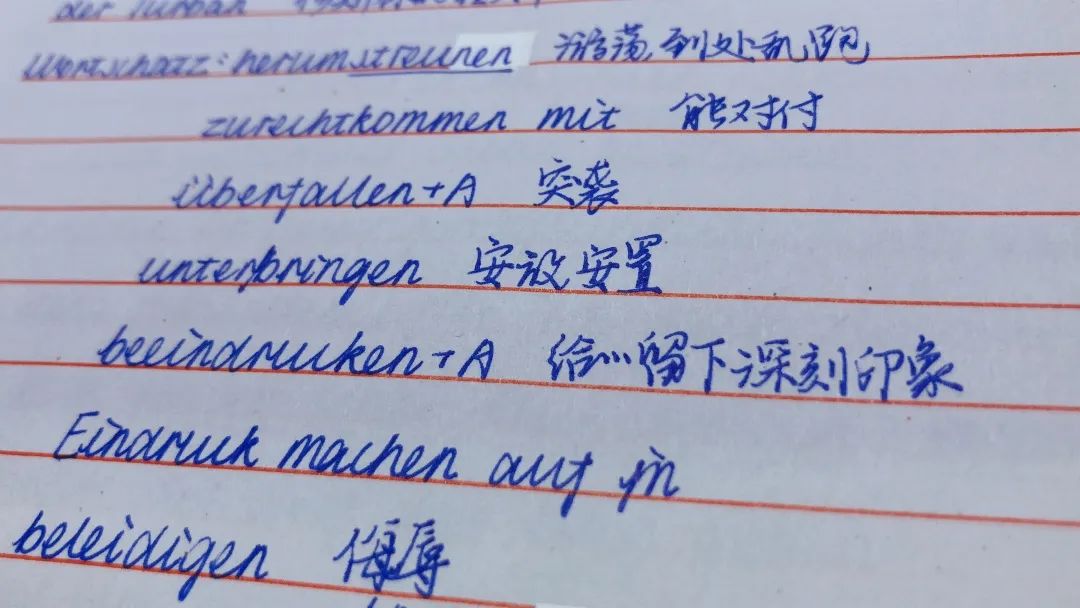 der Turban
Wortschatz: herumstreunen 游荡,到处乱跑
zurechtkommen mit 能对付
überfallen+A 突袭
unterbringen 安放安置
beeindrucken+A 给...留下深刻印象
Eindruck machen auf jn
beleidigen 侮辱